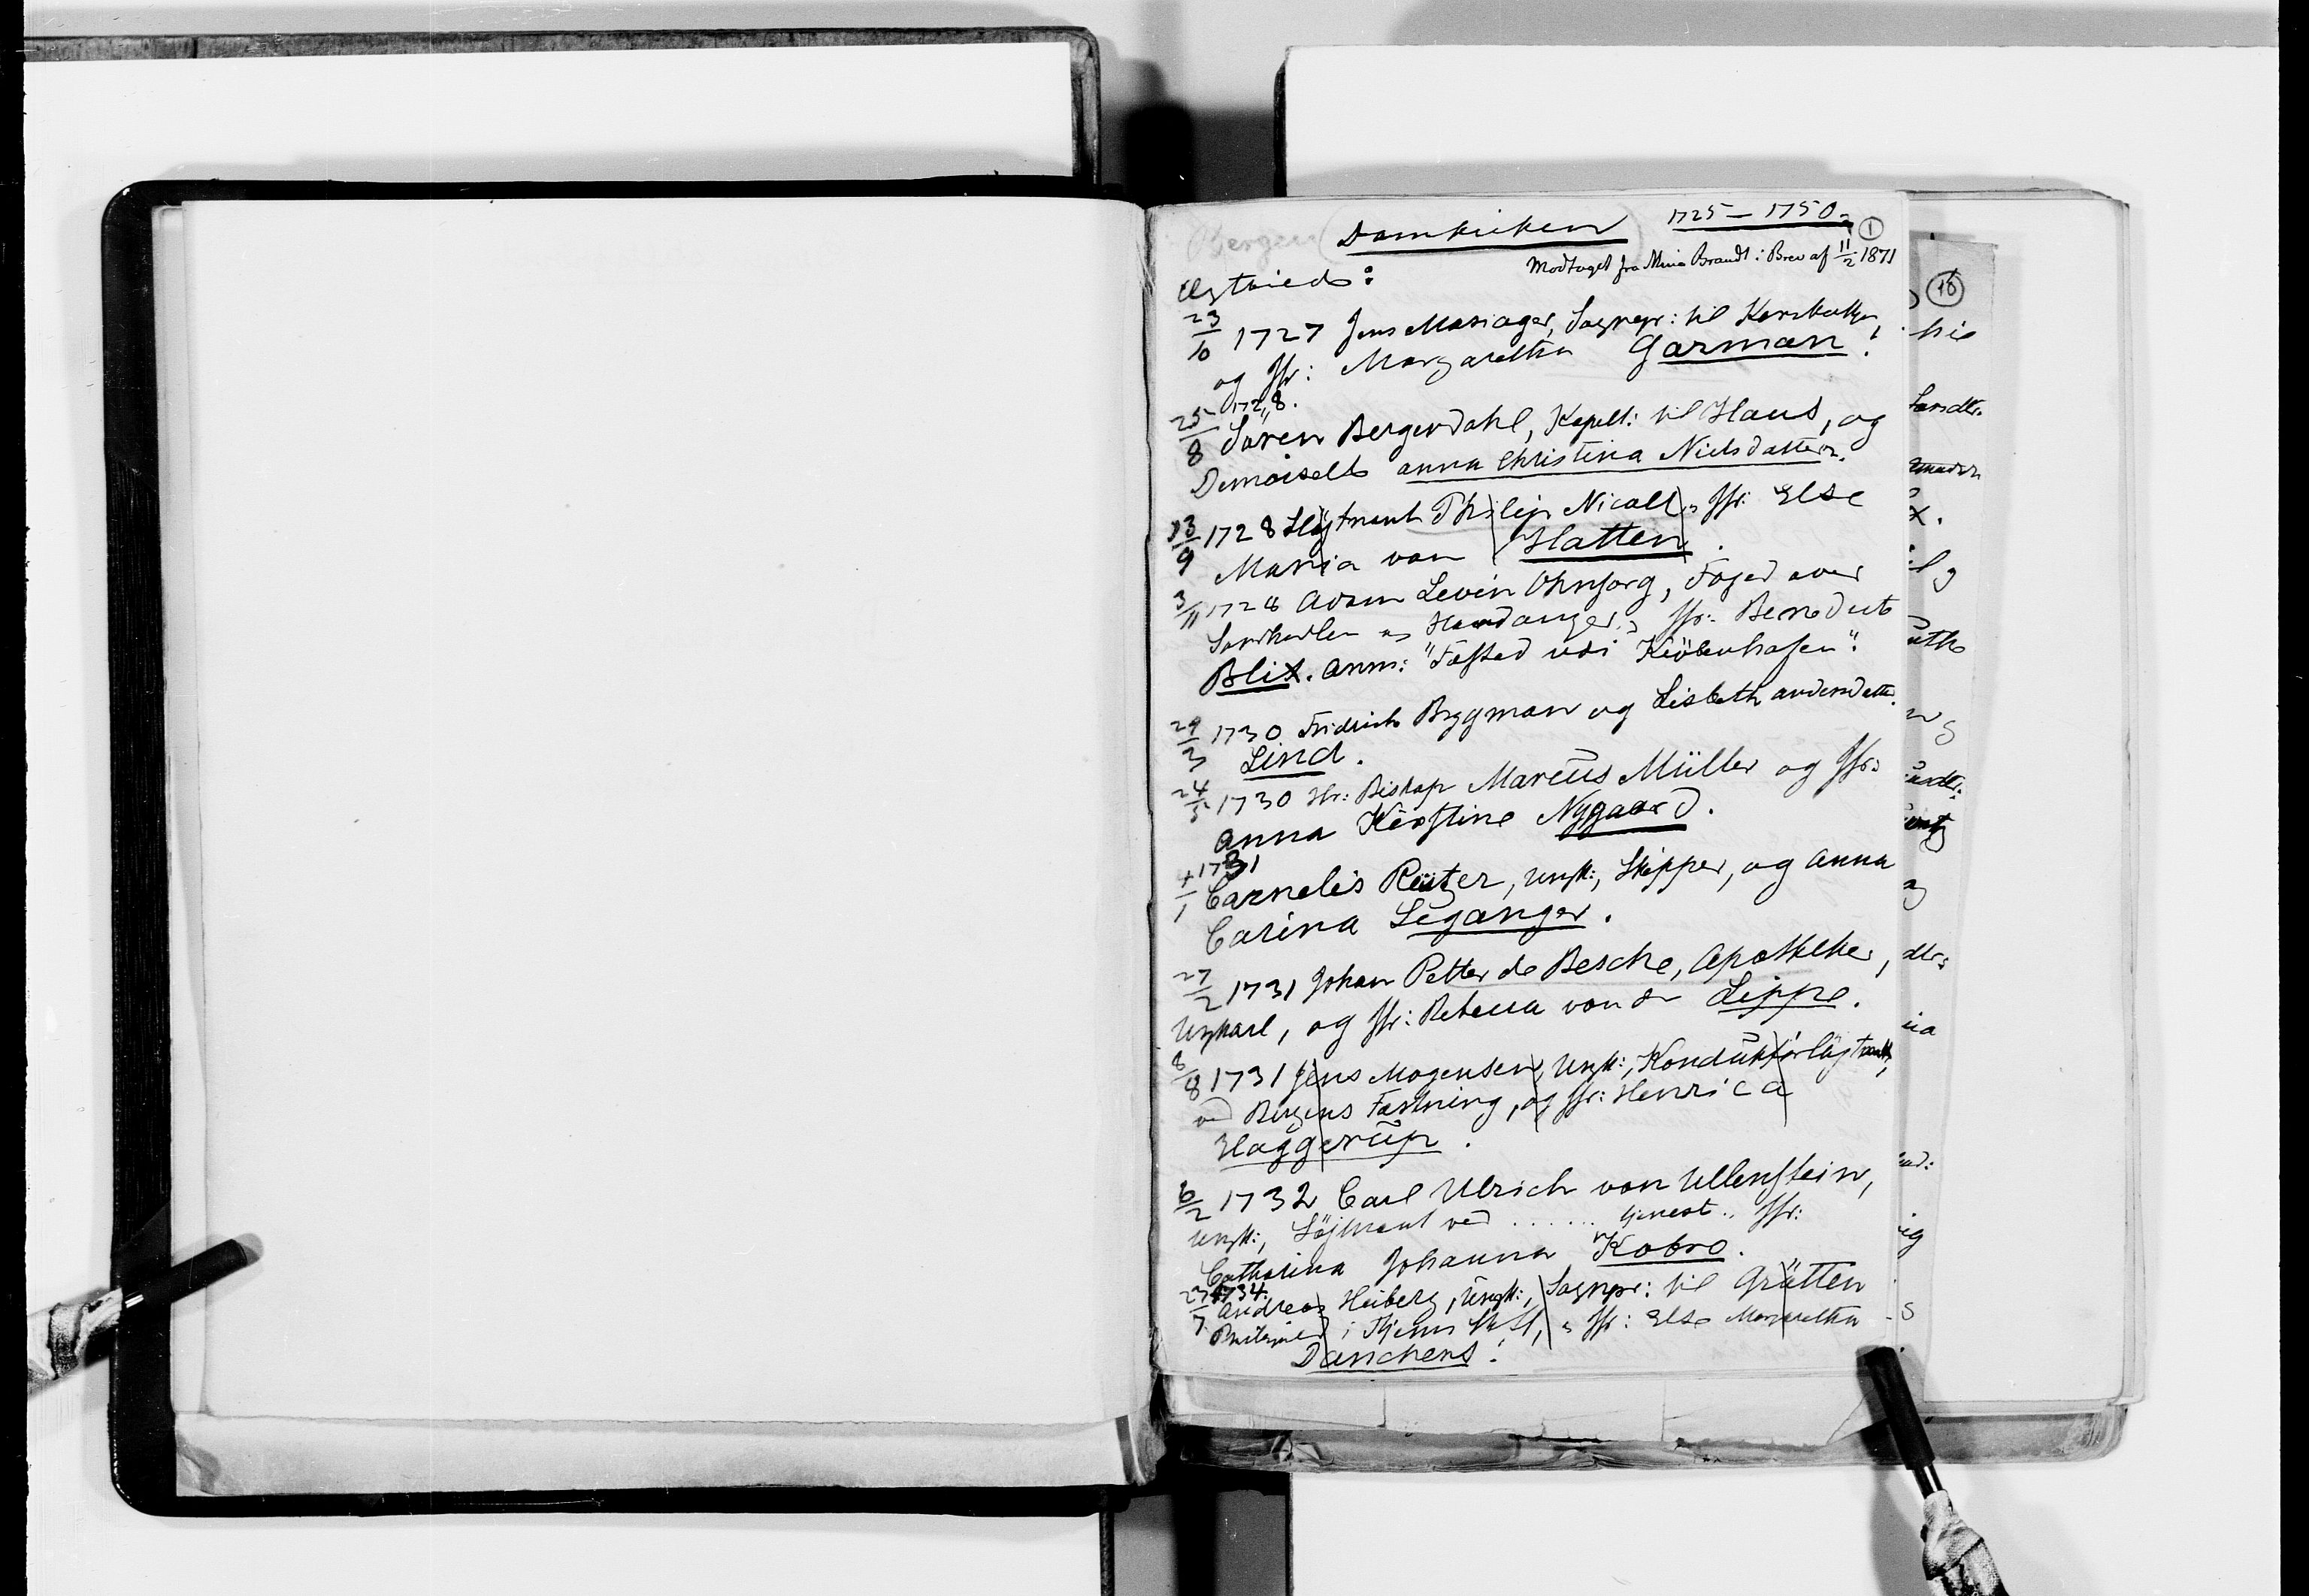 Bergen (Domkirken) 1725–1750.
①
Modtaget fra Mina Brandt i Brev af 11/2 1871
Ægtvied:
23/10 1727 Jens Mariager, Sognepr: til Korskirken,
og Jfr: Margaretha Garman!
25/8 1728.
Søren Bergendahl, Kapell: til Haus, og
Demoiselle Anna Christina Nielsdatter.
13/9 1728 Løjtnant Philip Nicoll, Jfr: Else
Maria von Hatten.
3/11 1728 Adam Levin Ohnsorg, Foged over
Søndhorlen og Hardanger, og Jfr: Benedicte
Blix. Anm: "Fæsted udi Kiöbenhafen".
29/3 1730 Fridrich Brygman og Lisbeth Andersdatter
Lind.
24/5 1730 Hr: Biskop Marcus Müller og Jfr:
Anna Kirstine Nygaard.
4/1 1731
Cornelis Reutzer, Ungk:, Skipper, og Anna
Carina Leganger.
27/2 1731 Johan Petter de Besche, Apotheker,
Ungkarl, og Jfr: Rebecca von der Lippe.
8/8 1731 Jens Mogensen, Ungk:, Konduktörløjtnant,
ved Bergens Fæstning, og Jfr: Henrica
Haggerup.
6/2 1732 Carl Ulrich von Ullenstein,
Ungk:, Löjtnant ved ...... tjenest. Jfr:
Catharina Johanna Kobro.
27/7 1734.
Andreas Heiberg, Ungk:, Sognepr: til Grütten
i Tjems Jfr: Else Margaretha
Danchens!
16